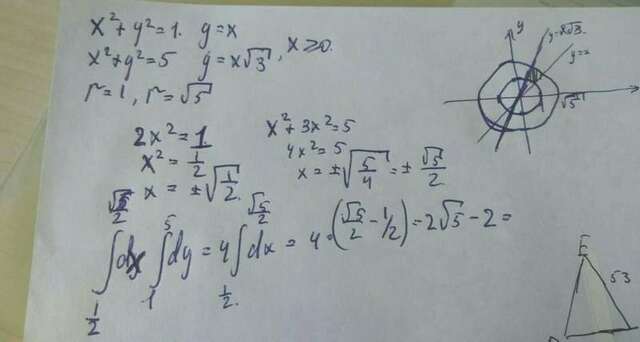 x²+y²=1. y=x
x²+y²=5 y=x√3, x≥0.
r=1, r=√5
2x²=1
x²=1/2
x=±√(1/2).
x²+3x²=5
4x²=5
x=±√(5/4)=±√5/2
∫_{1/2}^{√5/2} dx ∫_{1}^{5} dy = 4∫_{1/2.}^{√5/2} dx = 4·(√5/2 - 1/2) = 2√5 - 2 =
y
y=x√3
y=x
1
√5
x
E
53